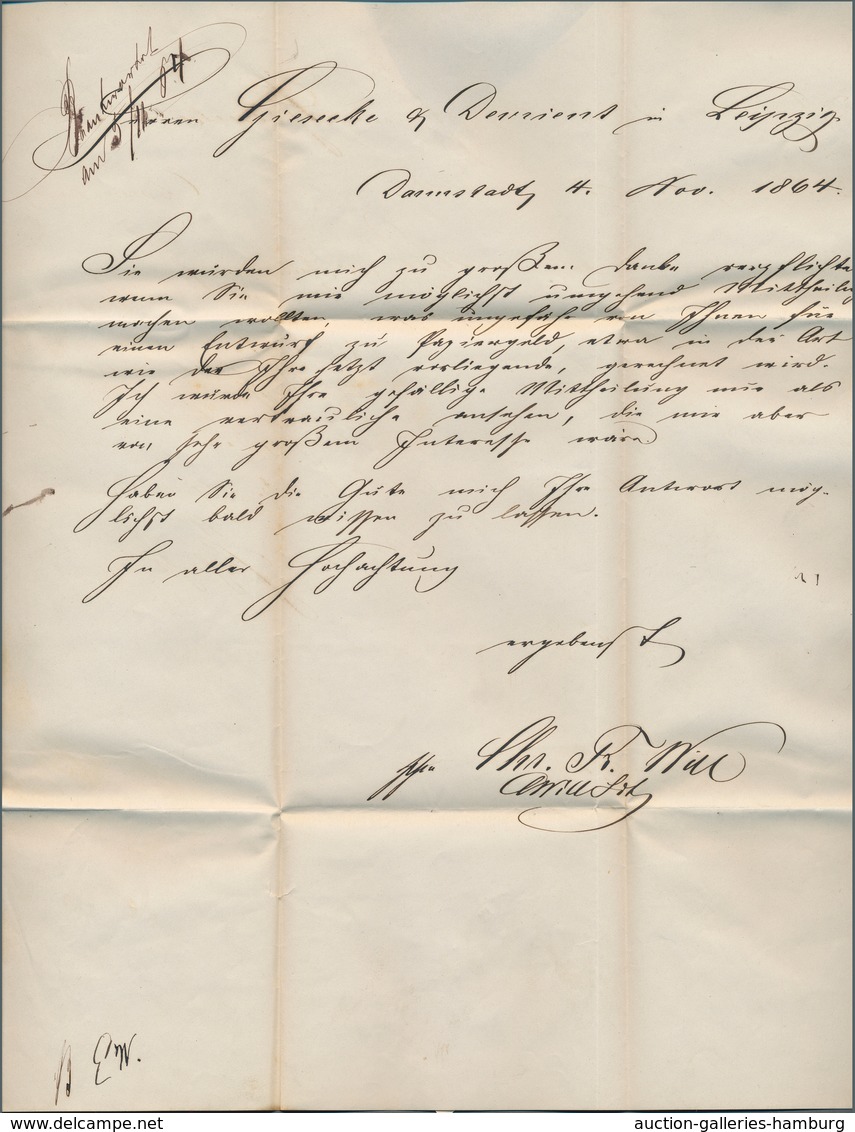 Beantwortet
am 5/11 64.
Herren Giesecke & Devrient in Leipzig
Darmstadt, 4. Nov. 1864.
Sie würden mich zu großem Danke verpflichten
wenn Sie mir möglichst umgehend Mittheilung
machen wollten, was ungefähr von Ihnen für
einen Entwurf zu Papiergeld, etwa in der Art
wie der Ihre jetzt vorliegende, gerechnet wird.
Ich würde Ihre gefällige Mittheilung nur als
eine vertrauliche ansehen, die mir aber
von sehr großem Interesse wäre
Haben Sie die Güte mich Ihre Antwort mög-
lichst bald wissen zu lassen.
In aller Hochachtung
ergebenst
Chr. R. Will
auction-galleries-hamburg